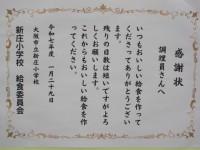 感謝状
調理員さんへ
いつもおいしい給食を作って
くださってありがとうござい
ます。
残りの日数は短いですがよろ
しくお願いします。
これからもおいしい給食を作
ってください。
令和七年度 一月二十九日
大阪市立新庄小学校
新庄小学校 給食委員会